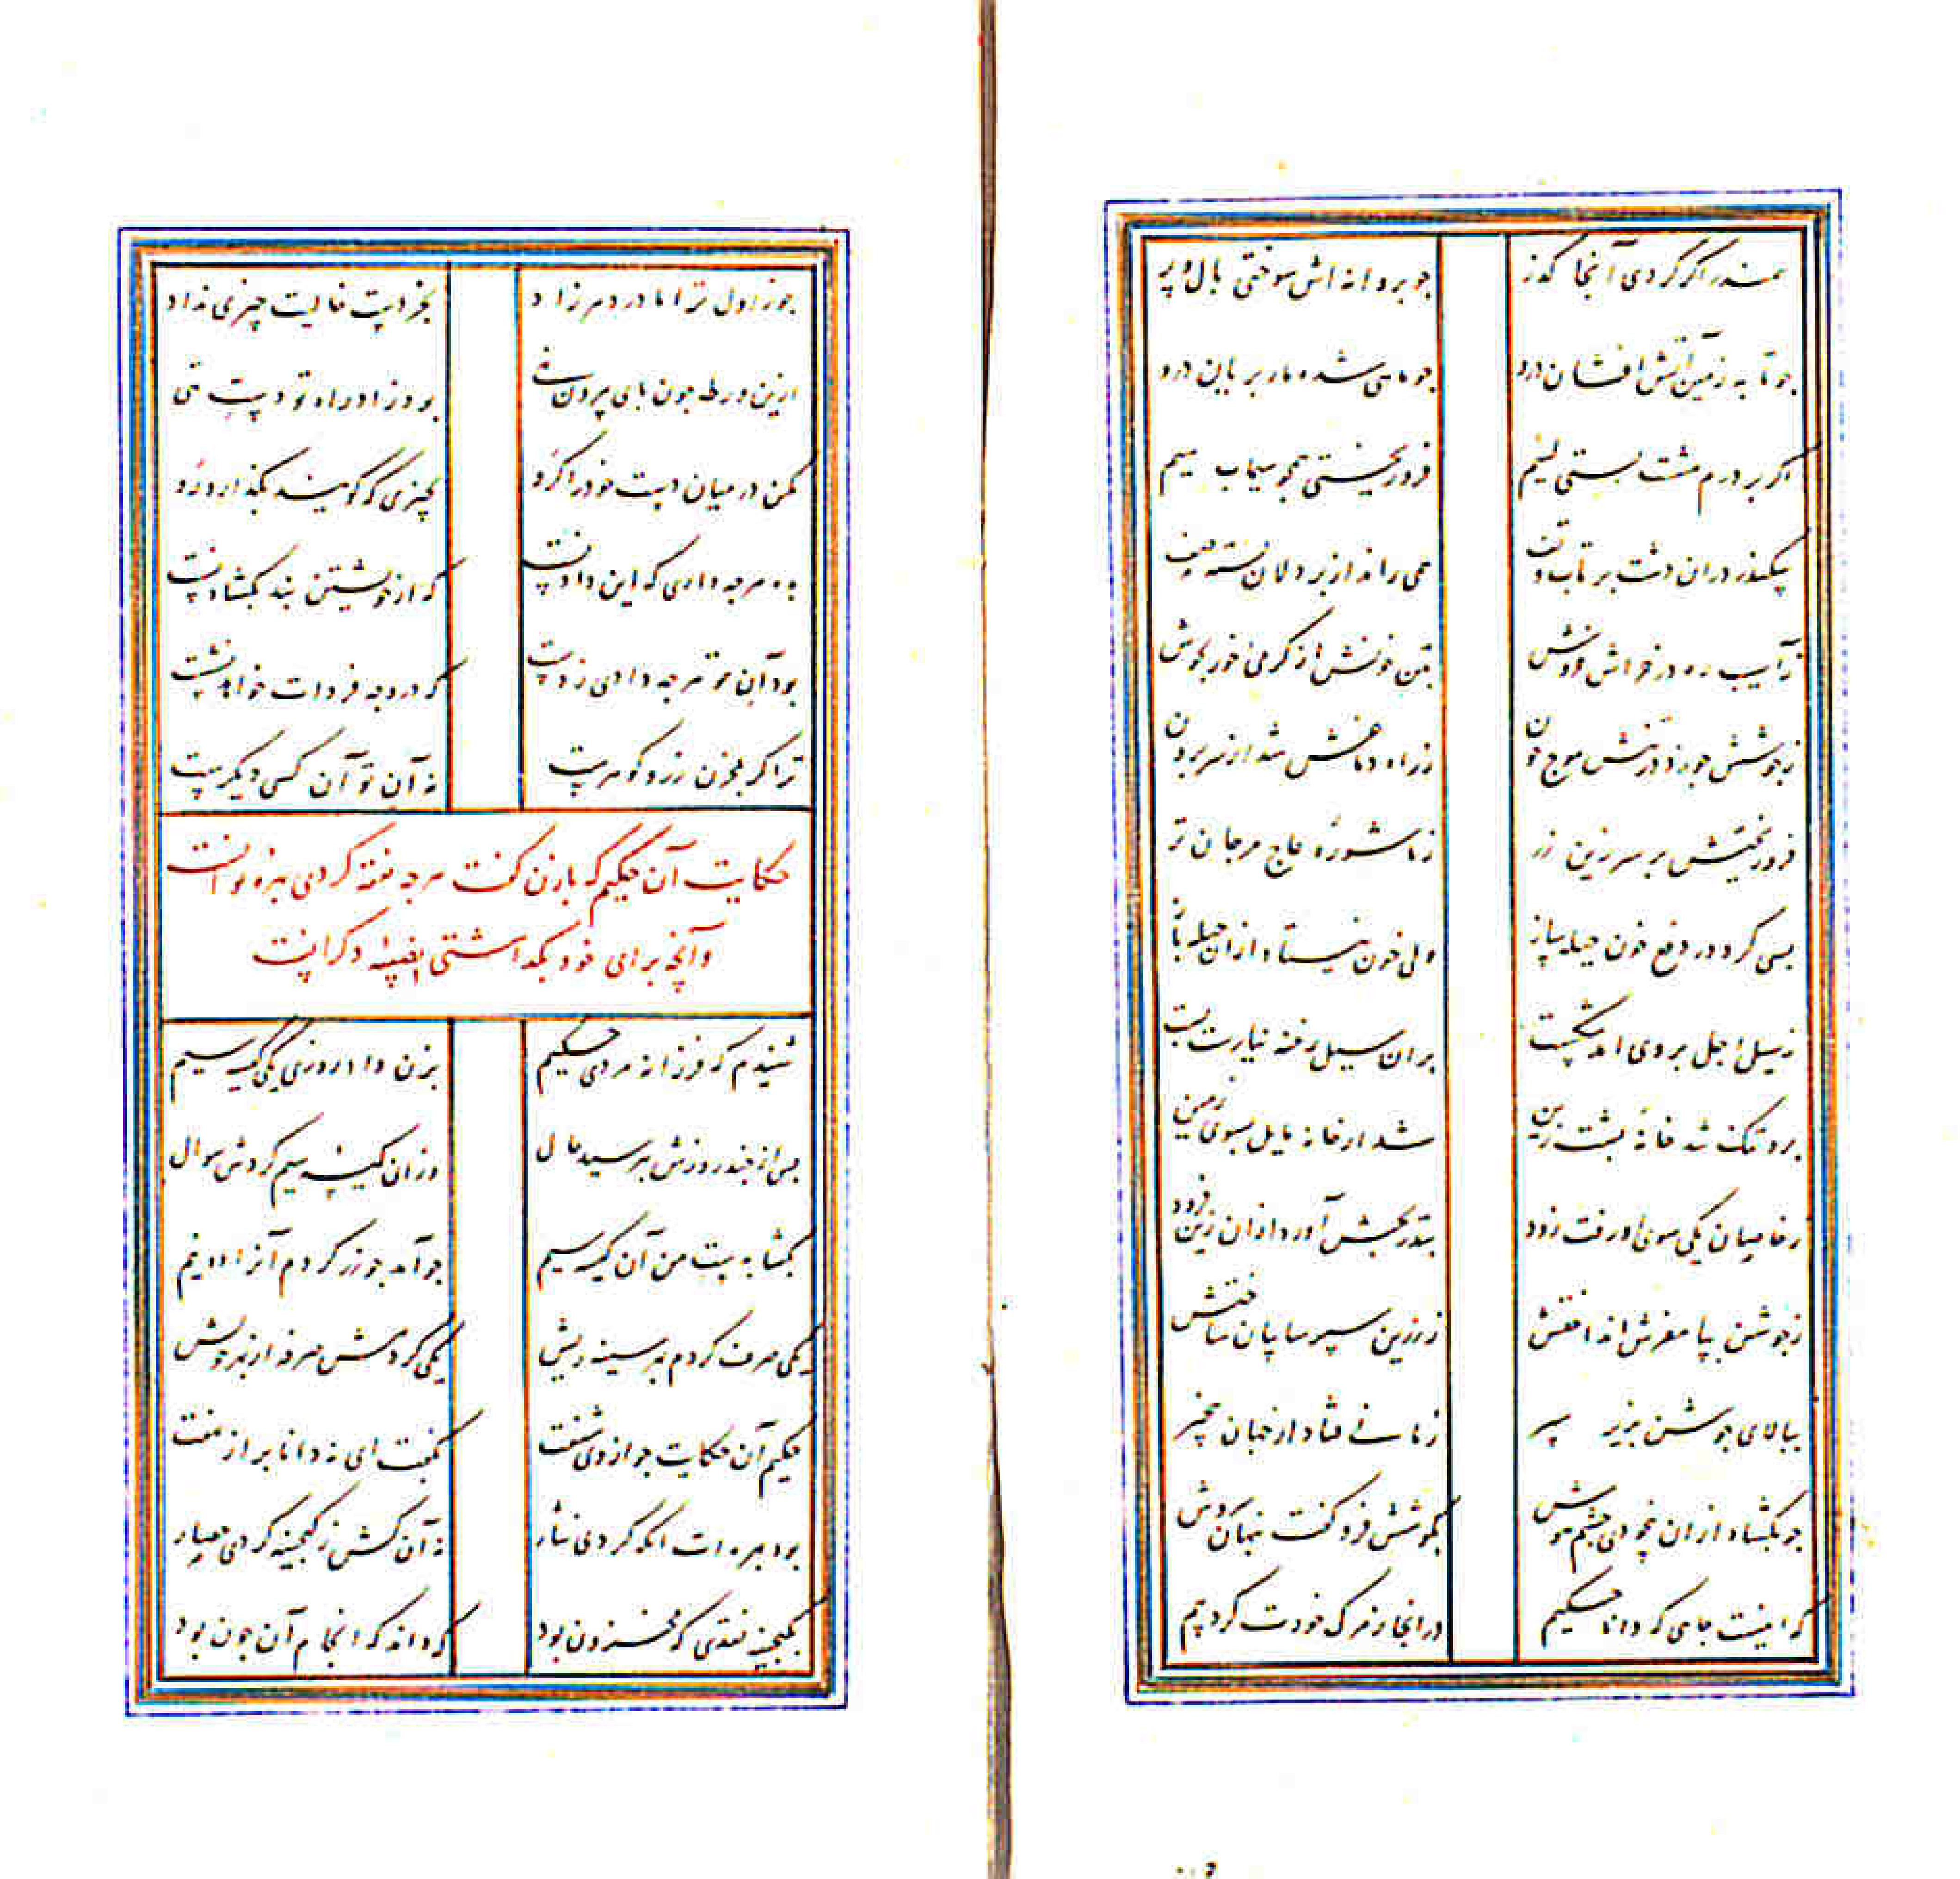 سمندر اگر کردی آنجا گذر چو پروانه اش سوختی بال و پر
چو تابه زمین آتش افشان درو چو ماهی شده مار بریان درو
اگر بر درم مشت بستی لئیم فرو ریختی همچو سیماب سیم
سکندر دران دشت پر تاب و تفت همی راند از پر دلان بسته صف
ز آسیب ره در خراش و خروش بتن خونش از گرمی خور بجوش
ز جوشش چو زد در تنش موج خون ز راه دماغش شد از سر برون
فرو ریختش بر سر زین زر ز ماشوره عاج مرجان تر
بسی کرد در دفع خون حیله ساز ولی خون نیستاد ازان حیله باز
ز سیل اجل بر وی آمد شکست بران سیل رخنه نیارست بست
برو تنگ شد خانه پشت زین شد از خانه مایل بسوی زمین
ز خاصیان یکی سوی او رفت زود بتدریجش آورد ازان زین فرود
ز جوشن بپا مفرش انداختش ز زرین سپر سایبان ساختش
ببالای جوشن بزیر سپر زمانی فتاد از جهان بیخبر
چو بگشاد ازان بیخودی چشم هوش بگوشش فرو گفت پنهان سروش
که اینست جایی که دانا حکیم در انجا ز مرگ خودت کرد بیم
چو ز اول ترا مادر دهر زاد بجز دست خالیت چیزی نداد
ازین ورطه چون پای بیرون نهی بود زاد راه تو دست تهی
مکن در میان دست خود را گرو بچیزی که گویند بگذار و رو
بده هرچه داری که این دادنست که از خویشتن بند بگشادنست
بود آن تو هرچه دادی ز دست که در وجه فردات خواهد نشست
ترا گر بمخزن زر و گوهرست نه آن تو آن کسی دیگرست
حکایت آن حکیم که با زن گفت هرچه نفقه کردی بهره تو آنست
و آنچه برای خود نگداشتی نصیبه دگرانست
شنیدم که فرزانه مردی حکیم بزن داد روزی یکی کیسه سیم
پس از چند روزش بپرسید حال وزان کیسه سیم کردش سوال
بگفتا بدست من آن کیسه سیم چو آمد چو زر کردم آنرا دو نیم
یکی صرف کردم بهر سینه ریش یکی کردمش صرفه از بهر خویش
حکیم آن حکایت چو از وی شنفت بگفت ای نه دانا براز نهفت
بود بهره ات آنکه کردی نثار نه آن کش ز گنجینه کردی حصار
بگنجینه نقدی که مخزون بود که داند که انجام آن چون بود